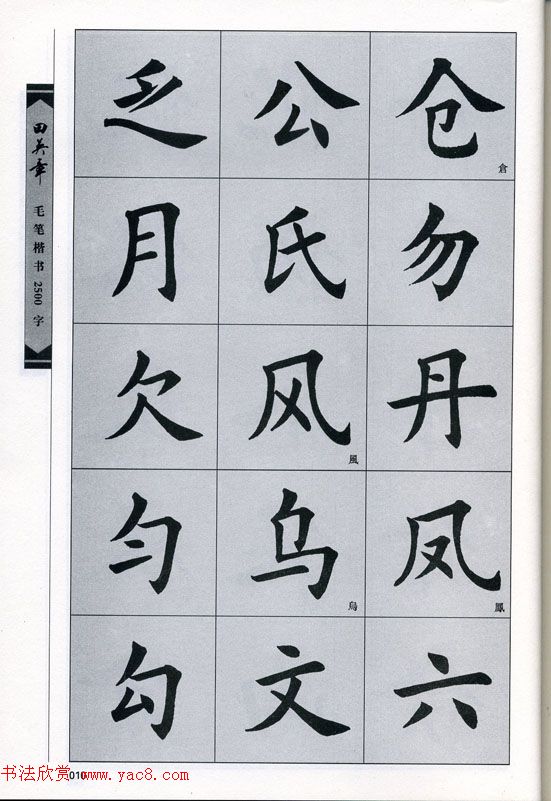 田英章 毛笔楷书 2500 字
乏 公 仓 倉
月 氏 勿
欠 风 風 丹
匀 乌 烏 凤 鳳
勾 文 六
010
书法欣赏 www.yac8.com